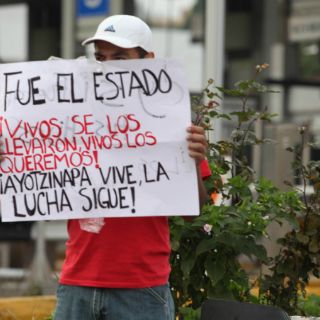 FUE EL ESTADO
¡VIVOS SE LOS
LLEVARON, VIVOS LOS
QUEREMOS!
¡AYOTZINAPA VIVE, LA
LUCHA SIGUE!